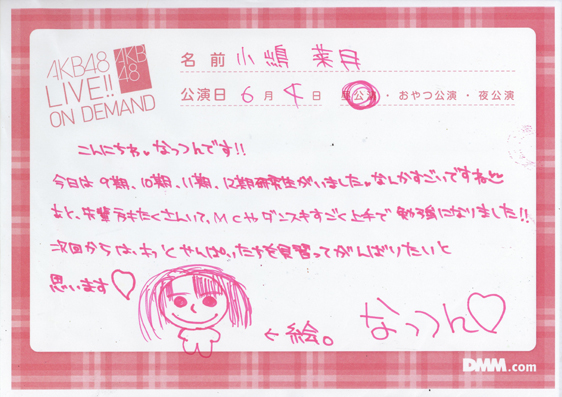 AKB48
LIVE!!
ON DEMAND
AKB
48
名前 小嶋 菜月
公演日 6月4日 昼公演・おやつ公演・夜公演
こんにちわ。なっつんです!!
今日は9期、10期、11期、12期研究生がいました。なんかすごいですね
あと、先輩方もたくさんいて、MCやダンスもすごく上手で勉強になりました!!
次回からは、もっと 先輩たちを見習ってがんばりたいと
思います♡
←絵。
なっつん♡
DMM.com